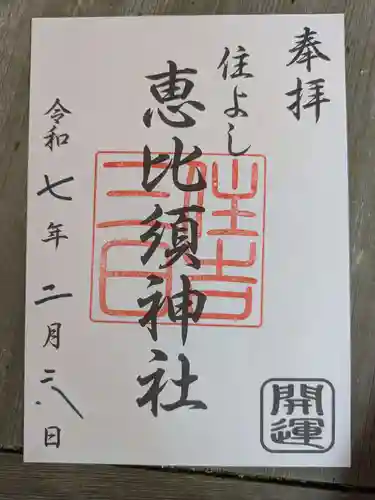 奉拝
住よし
恵比須神社
令和七年二月二八日
住吉
三日
開運